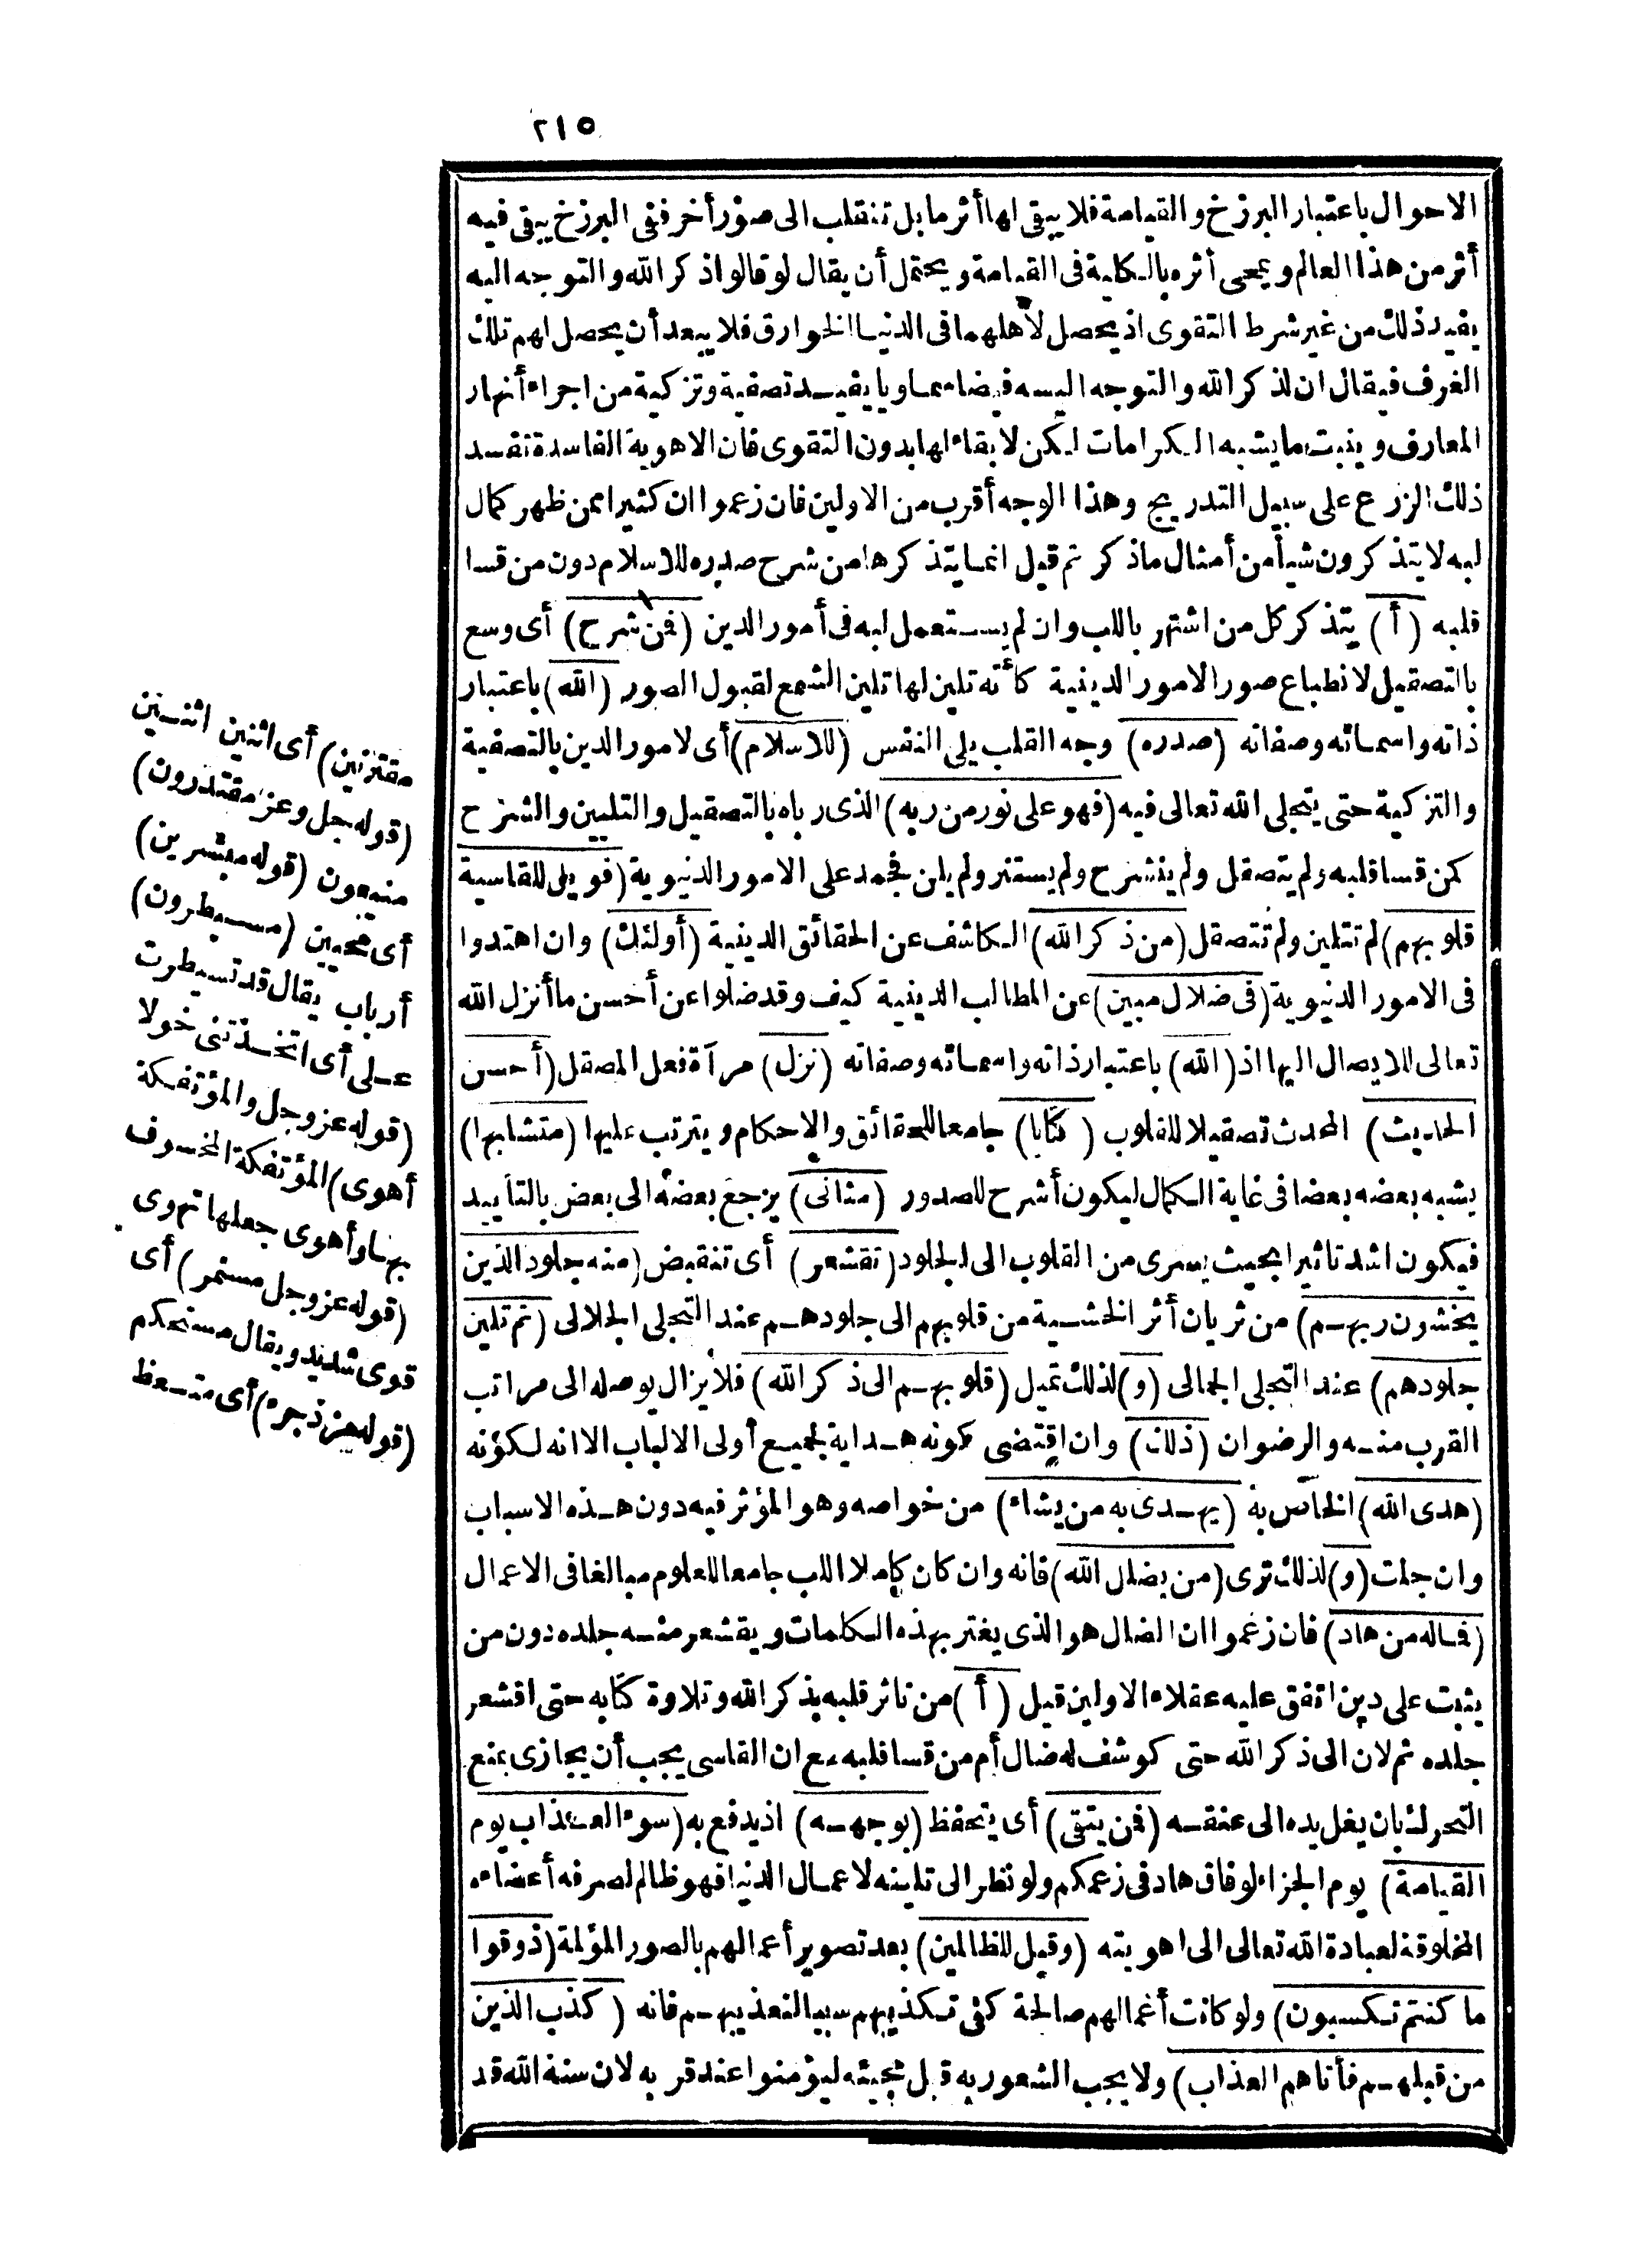 ٢١٥
الاحوال باعتبار البرزخ والقيامة فلا يبقى لها أثر ما بل تنقلب الى صور أخر ففى البرزخ يبقى فيه
أثر من هذا العالم ويمحى أثره بالكلية فى القيامة ويحتمل أن يقال لو قالوا ذكر الله والتوجه اليه
يفيد ذلك من غير شرط التقوى اذ يحصل لأهلهما فى الدنيا الخوارق فلا يبعد أن يحصل لهم تلك
الغرف فيقال ان لذكر الله والتوجه اليه فيضا سماويا يفيد تصفية وتزكية من اجراء أنهار
المعارف وينبت ما يشبه الكرامات لكن لا بقاء لها بدون التقوى فان الاهوية الفاسدة تفسد
ذلك الزرع على سبيل التدريج وهذا الوجه أقرب من الاولين فان زعموا ان كثيرا ممن ظهر كمال
لبه لا يتذكرون شيأ من أمثال ماذكر ثم قيل انما يتذكرها من شرح صدره للاسلام دون من قسا
قلبه (أ) يتذكر كل من اشتهر باللب وان لم يستعمل لبه فى أمور الدين (فمن شرح) أى وسع
بالتصقيل لانطباع صور الامور الدينية كأنه تلين لها تلين الشمع لقبول الصور (الله) باعتبار
ذاته واسمائه وصفاته (صدره) وجه القلب يلى النفس (للاسلام) أى لامور الدين بالتصفية
والتزكية حتى يتجلى الله تعالى فيه (فهو على نور من ربه) الذى رباه بالتصقيل والتليين والشرح
كمن قسا قلبه ولم يتصقل ولم ينشرح ولم يستنر ولم يلن فجمد على الامور الدنيوية (فويل للقاسية
قلوبهم) لم تتلين ولم تتصقل (من ذكر الله) الكاشف عن الحقائق الدينية (أولئك) وان اهتدوا
فى الامور الدنيوية (فى ضلال مبين) عن المطالب الدينية كيف وقد ضلوا عن أحسن ما أنزل الله
تعالى للايصال اليها اذ (الله) باعتبار ذاته واسمائه وصفاته (نزل) مرآة فعل المصقل (أحسن
الحديث) المحدث تصقيلا للقلوب (كتابا) جامعا للحقائق والاحكام ويترتب عليها (متشابها)
يشبه بعضه بعضا فى غاية الكمال ليكون أشرح للصدور (مثانى) يرجع بعضه الى بعض بالتأييد
فيكون اشد تاثيرا بحيث يسرى من القلوب الى الجلود (تقشعر) أى تنقبض (منه جلود الذين
يخشون ربهم) من ثريان أثر الخشية من قلوبهم الى جلودهم عند التجلى الجلالى (ثم تلين
جلودهم) عند التجلى الجمالى (و) لذلك تميل (قلوبهم الى ذكر الله) فلا يزال يوصله الى مراتب
القرب منه والرضوان (ذلك) وان اقتضى كونه هداية لجميع أولى الالباب الا انه لكونه
(هدى الله) الخاص به (يهدى به من يشاء) من خواصه وهو المؤثر فيه دون هذه الاسباب
وان جلت (و) لذلك ترى (من يضلل الله) فانه وان كان كاملا اللب جامعا للعلوم مبالغا فى الاعمال
(فماله من هاد) فان زعموا ان الضال هو الذى يغتر بهذه الكلمات ويقشعر منه جلده دون من
يثبت على دين اتفق عليه عقلاء الاولين قيل (أ) من تاثر قلبه بذكر الله وتلاوة كتابه حتى اقشعر
جلده ثم لان الى ذكر الله حتى كوشف له ضال أم من قسا قلبه مع ان القاسى يجب أن يجازى بمنع
التحرك بان يغل يده الى عنقه (فمن يتقى) أى يتحفظ (بوجهه) اذ يدفع به (سوء العذاب يوم
القيامة) يوم الجزاء لوفاق هاد فى زعمكم ولو نظر الى تلينه لاعمال الدنيا فهو ظالم لصرفه أعضاءه
المخلوقة لعبادة الله تعالى الى اهويته (وقيل للظالمين) بعد تصوير أعمالهم بالصور المؤلمة (ذوقوا
ما كنتم تكسبون) ولو كانت أعمالهم صالحة كفى تكذيبهم سببا لتعذيبهم فانه (كذب الذين
من قبلهم فأتاهم العذاب) ولا يجب الشعور به قبل مجيئه ليؤمنوا عند قربه لان سنة الله قد
مقترنين) أى اثنين اثنين
(قوله جل وعز مقتدرون)
منيعون (قوله مبشرين)
أى محيين (مسيطرون)
أرباب يقال قد تسيطرت
على أى اتخذتنى خولا
(قوله عز وجل والمؤتفكة
أهوى) المؤتفكة المخسوف
بها وأهوى جعلها تهوى
(قوله عز وجل مستمر) أى
قوى شديد ويقال مستحكم
(قوله مزدجر) أى متعظ